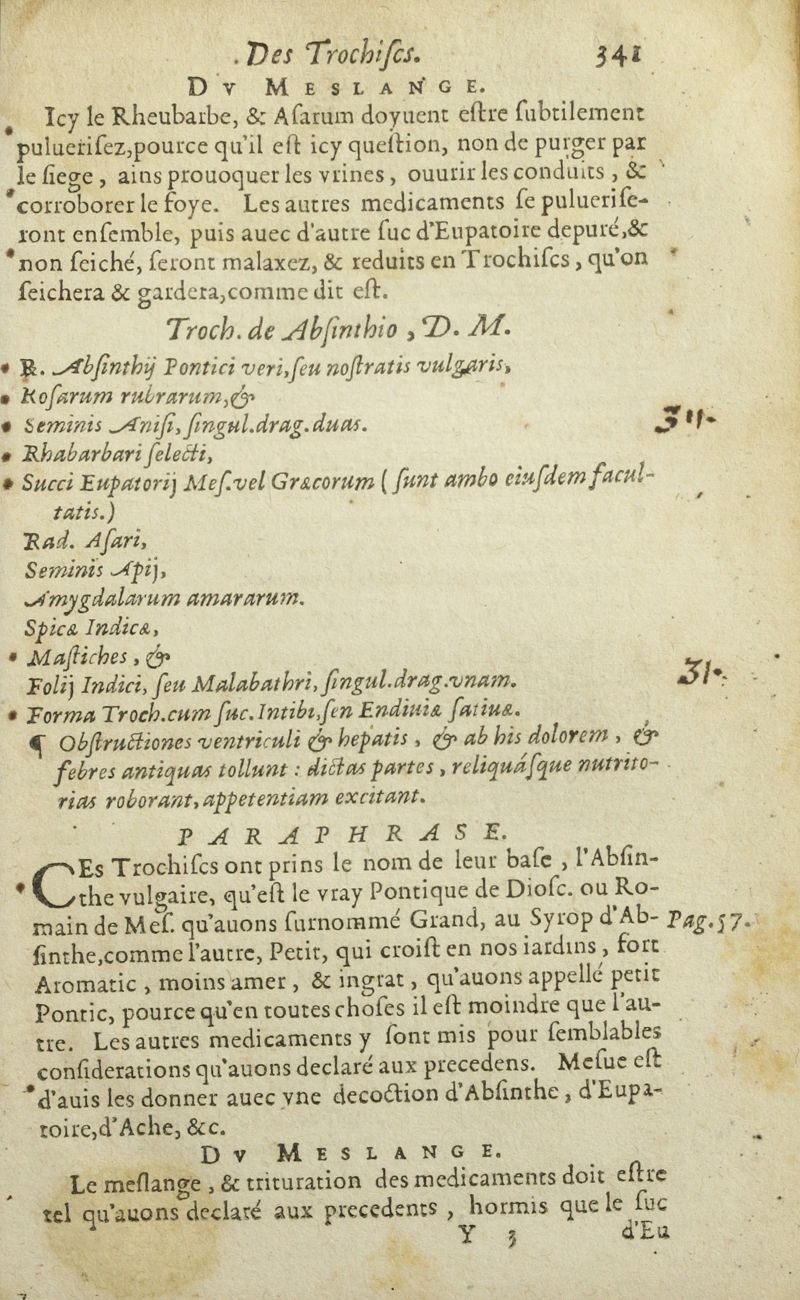 . Des Trochiſcs. 341
DV MESLANGE.
Icy le Rheubarbe, & Aſarum doyuent eſtre ſubtilement
puluerifez,pource qu'il eſt icy queſtion, non de purger par
le ſiege, ains prouoquer les vrines, ouurir les conduits, &
corroborer le foye. Les autres medicaments ſe puluerife-
ront enſemble, puis auec d'autre ſuc d'Eupatoire depuré,&
non ſeiché, ſeront malaxez, & reduits en Trochiſcs, qu'on
ſeichera & gardera,comme dit eſt.
Troch. de Abſinthio, D. M.
℞. Abſinthij Pontici veri,ſeu noſtratis vulgaris,
Roſarum rubrarum,&
Seminis Aniſi, ſingul.drag.duas. ʒ ij.
Rhabarbari ſelecti,
Succi Eupatorij Meſ.vel Græcorum ( ſunt ambo eiuſdem facul-
tatis.)
Rad. Aſari,
Seminis Apij,
Amygdalarum amararum.
Spicæ Indicæ,
Maſtiches, &
Folij Indici, ſeu Malabathri, ſingul.drag.vnam. ʒ j.
Forma Troch.cum ſuc.Intibi,ſeu Endiuiæ ſatiuæ.
¶ Obſtructiones ventriculi & hepatis, & ab his dolorem, &
febres antiquas tollunt : dictas partes, reliquáſque nutrito-
rias roborant, appetentiam excitant.
PARAPHRASE.
CEs Trochiſcs ont prins le nom de leur baſe, l'Abſin-
the vulgaire, qu'eſt le vray Pontique de Dioſc. ou Ro-
main de Meſ. qu'auons ſurnommé Grand, au Syrop d'Ab- Pag.57.
ſinthe,comme l'autre, Petit, qui croiſt en nos iardins, fort
Aromatic, moins amer, & ingrat, qu'auons appellé petit
Pontic, pource qu'en toutes choſes il eſt moindre que l'au-
tre. Les autres medicaments y ſont mis pour ſemblables
conſiderations qu'auons declaré aux precedens. Meſue eſt
d'auis les donner auec vne decoction d'Abſinthe, d'Eupa-
toire,d'Ache, &c.
DV MESLANGE.
Le meſlange, & trituration des medicaments doit eſtre
tel qu'auons declaré aux precedents, hormis que le ſuc
Y 3 d'Eu